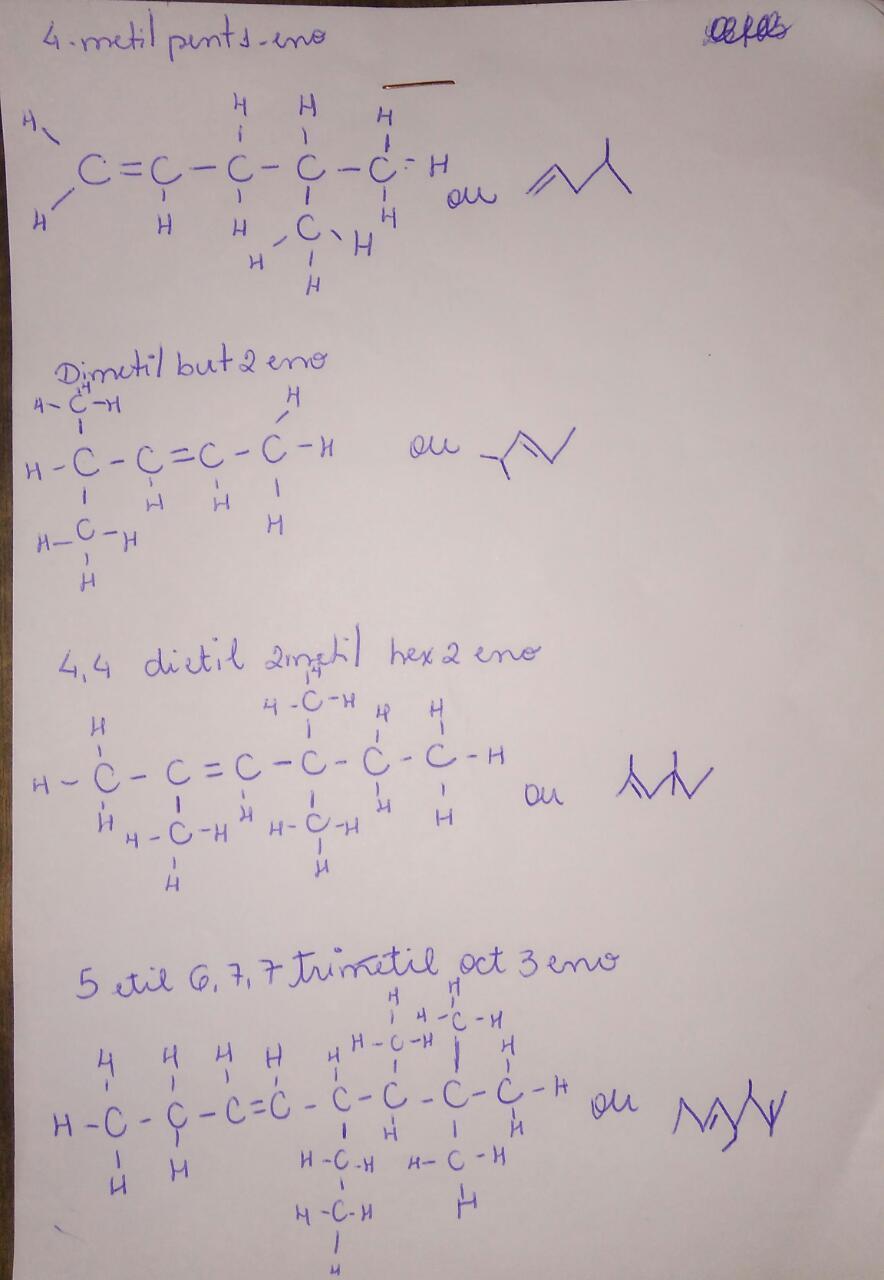 4-metil pent 1-eno
H H H H
C=C-C-C-C-H
H H H C H H
H H
ou
Dimetil but 2 eno
H
H-C-H H
H-C-C=C-C-H
ou
H H H
H-C-H
H
4,4 dietil 2 metil hex 2 eno
H
H-C-H
H H H
H-C-C=C-C-C-C-H
ou
H H H H
H-C-H H-C-H
H H
5 etil 6,7,7 trimetil oct 3 eno
H H
H-C-H H-C-H
H H H H H H
H-C-C-C=C-C-C-C-C-H
ou
H H H H
H-C-H H-C-H
H-C-H H
H